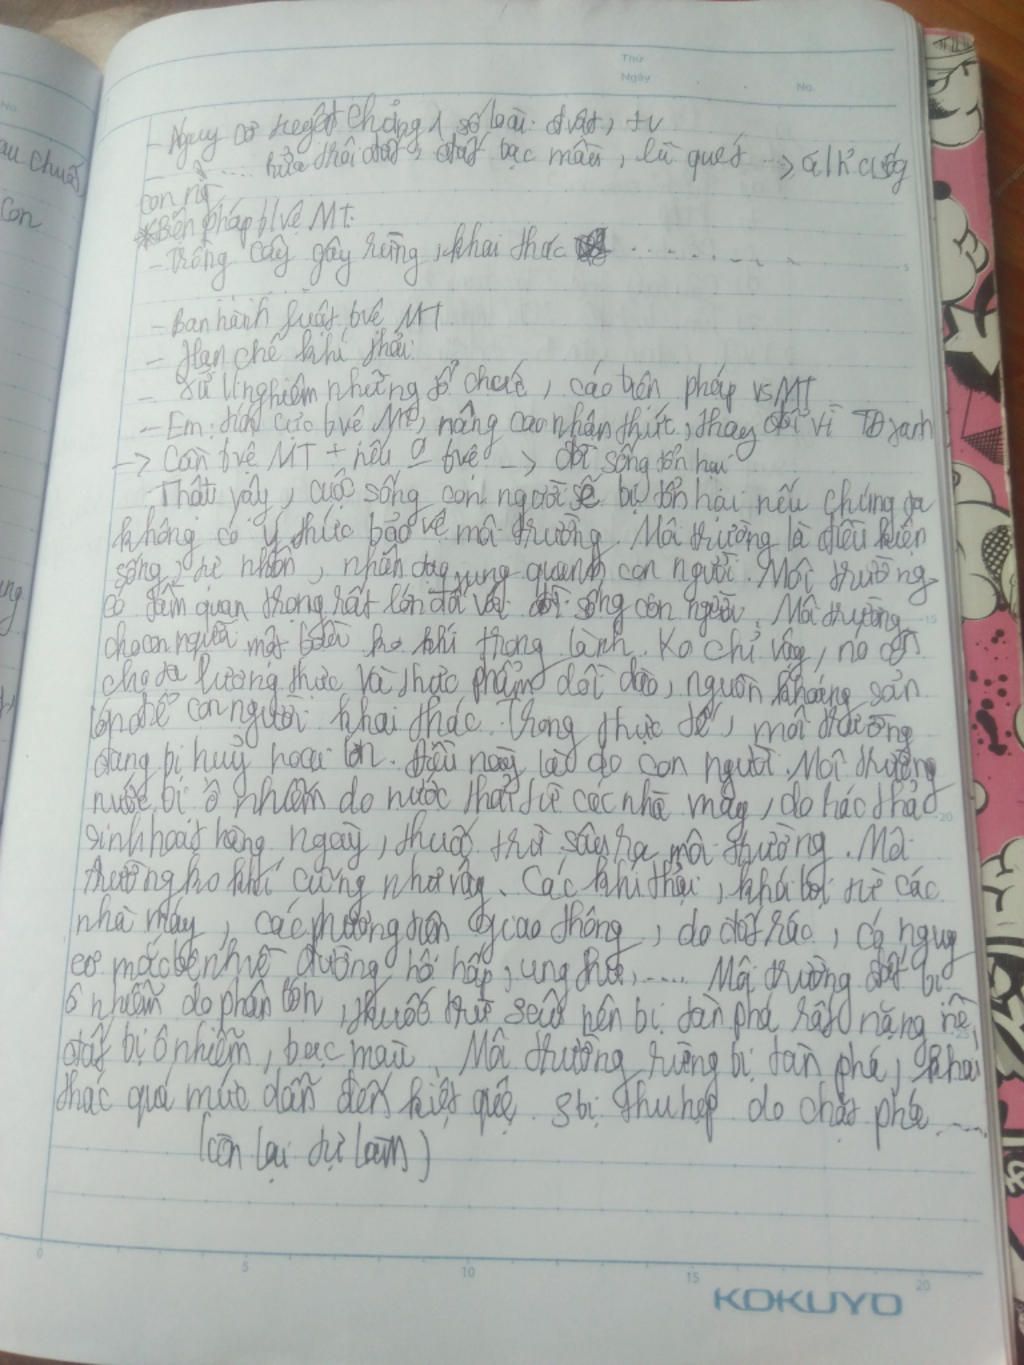 No.
Thứ
Ngày
No.
- Nguy cơ tuyệt chủng 1 số loài đvật, tv
..... hữu thái đất, đất bạc màu, lũ quét ... → a/h' c/sống
con ng
* Biện pháp b/vệ MT.
- Trồng cây gây rừng, khai thác ........
- Ban hành luật bvệ MT
- Hạn chế khí thải
- Xử lí nghiêm những tổ chức, cá nhân vs MT
- Em: tích cực bvệ MT, nâng cao nhận thức, thay đổi vì TĐ xanh
-> Cần bvệ MT + nếu 0 bvệ -> đời sống tổn hại
Thật vậy, cuộc sống con người sẽ bị tổn hại nếu chúng ta
không có ý thức bảo vệ môi trường. Môi trường là điều kiện
sống, tự nhiên, nhân tạo xung quanh con người. Môi trường
có tầm quan trọng rất lớn đối với đời sống con người. Môi trường
cho con người một bầu ko khí trong lành. Ko chỉ vậy, nó còn
cho ta lương thực và thực phẩm dồi dào, nguồn khoáng sản
lớn để con người khai thác. Trong thực tế, môi trường
đang bị huỷ hoại lớn. Điều này là do con người. Môi trường
nước bị ô nhiễm do nước thải từ các nhà máy, do rác thải
sinh hoạt hằng ngày, thuốc trừ sâu ra môi trường. Môi
trường ko khí cũng như vậy. Các khí thải, khói bụi từ các
nhà máy, các phương tiện giao thông, do đốt rác, có nguy
cơ mắc bệnh về đường hô hấp, ung thư,..... Môi trường đất bị
ô nhiễm do phân bón, thuốc trừ sâu nên bị tàn phá rất nặng nề,
đất bị ô nhiễm, bạc màu. Môi trường rừng bị tàn phá, khai
thác quá mức dẫn đến kiệt quệ. bị thu hẹp do chặt phá.....
(còn lại tự làm)
0 5 10 15 20
KOKUYO